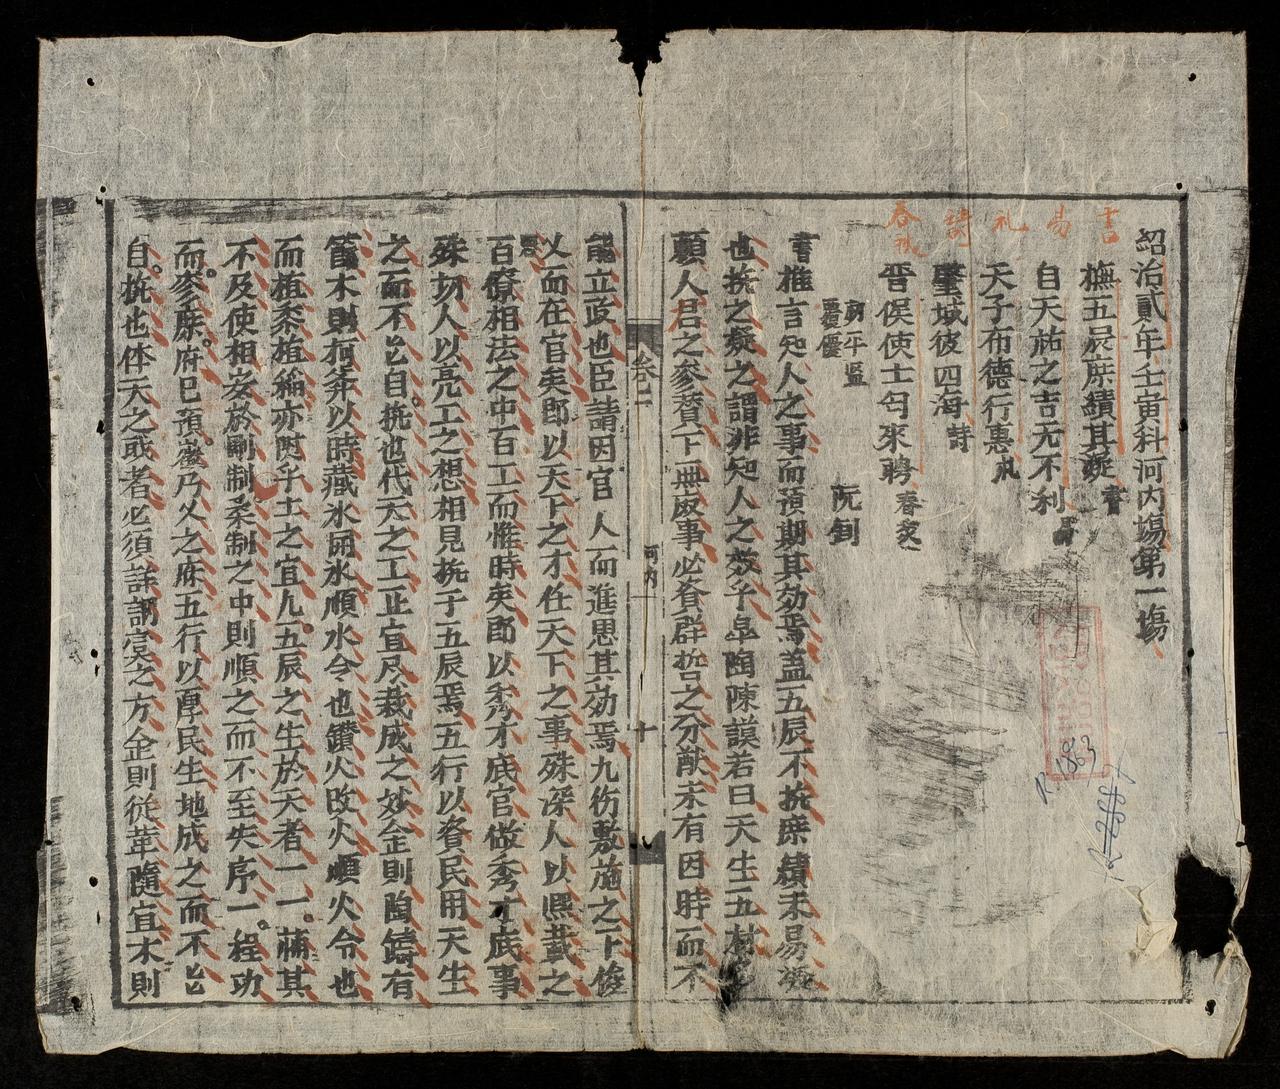 紹治貳年壬寅科河内場第一場
書
撫五辰庶績其凝書
易
自天祐之吉无不利
礼
天子布德行惠礼
詩
肇域彼四海詩
春秋
晉侯使士匄來聘春秋
平
覆優
阮釗
書推言知人之事而預期其効焉盖五辰不撫庶績未易凝
也撫之凝之謂非知人之效乎皋陶陳謨若曰天生五材
願人君之參賛下無廢事必資群哲之分猷未有因時而不
卷二
河内
十
能立政也臣請因官人而進思其効焉九德敷施之下俊
乂而在官矣即以天下之才任天下之事殊深人以熙載之
百僚相法之中百工而惟時矣即以秀才底官做秀才底事
殊切人以亮工之想相見撫于五辰焉五行以資民用天生
之而不能自撫也代天之工止宜尽裁成之妙金則陶鑄有
官木則柯斧以時藏氷開氷順水令也鑽火改火順火令也
而植黍植稲亦因乎土之宜凡五辰之生於天者一一蒲其
不及使相安於剛制柔制之中則順之而不至失序一程功
而参庶府已預凝乃乂之府五行以厚民生地成之而不能
自撫也体天之或者必須詳調爕之方金則從革随宜木則
R.1963
R.2881